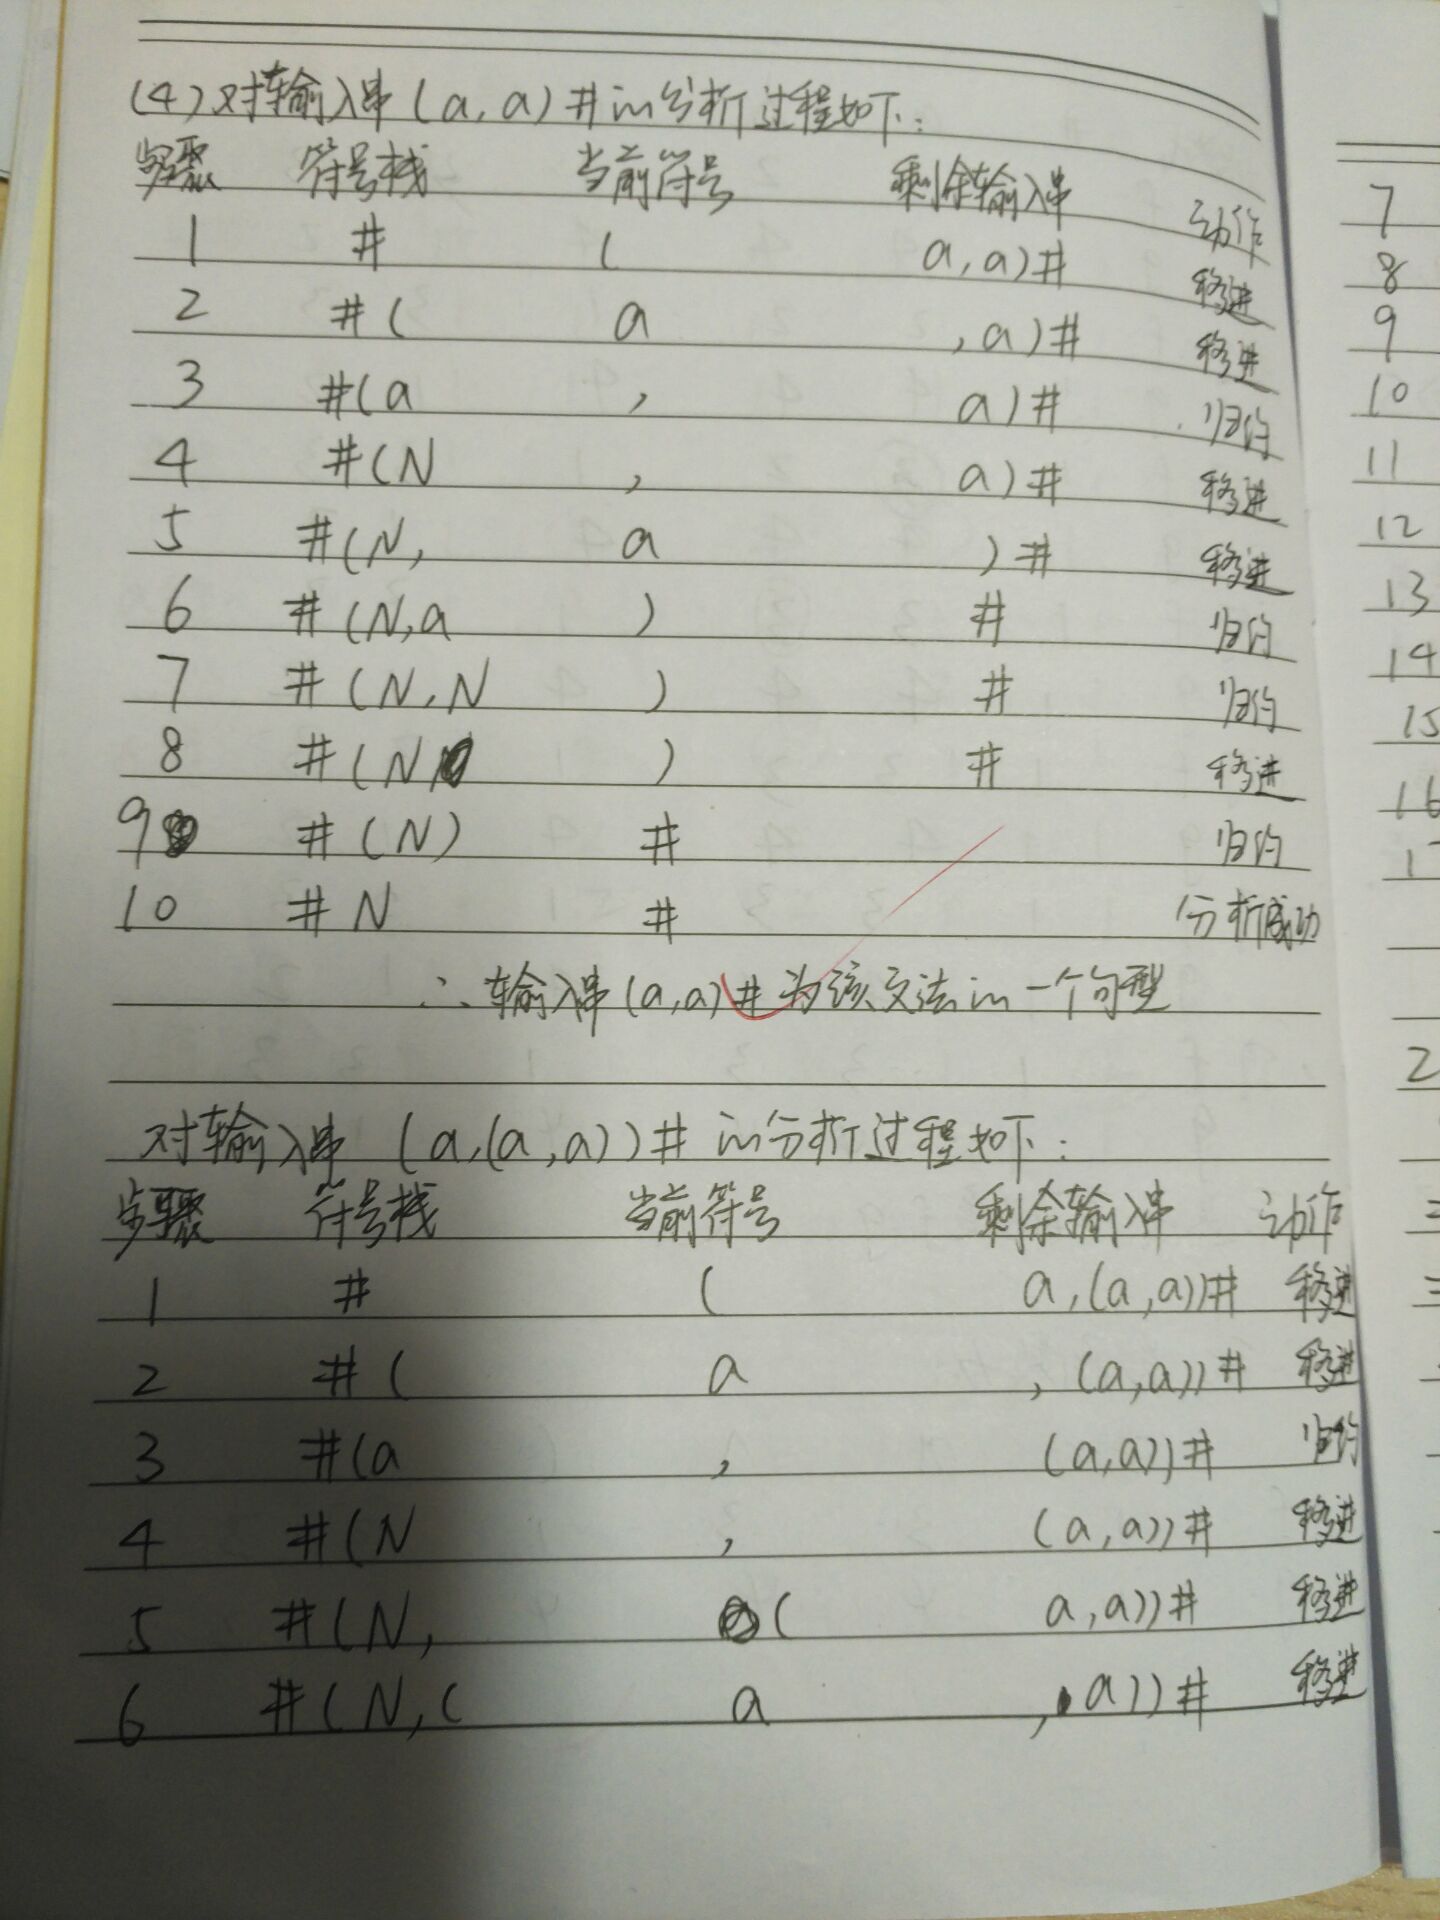 (4)对输入串(a,a)#的分析过程如下:
步骤 符号栈 当前符号 剩余输入串 动作
1 # ( a,a)# 移进
2 #( a ,a)# 移进
3 #(a , a)# 归约
4 #(N , a)# 移进
5 #(N, a )# 移进
6 #(N,a ) # 归约
7 #(N,N ) # 归约
8 #(N ) # 移进
9 #(N) # 归约
10 #N # 分析成功
∴输入串(a,a)#为该文法的一个句型
对输入串(a,(a,a))#的分析过程如下:
步骤 符号栈 当前符号 剩余输入串 动作
1 # ( a,(a,a))# 移进
2 #( a ,(a,a))# 移进
3 #(a , (a,a))# 归约
4 #(N , (a,a))# 移进
5 #(N, ( a,a))# 移进
6 #(N,( a ,a))# 移进
7
8
9
10
11
12
13
14
15
16
2